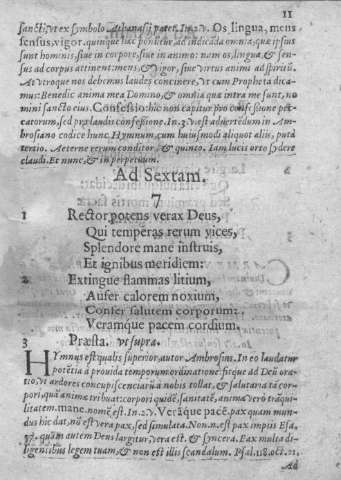 11
sancti, vt ex symbolo Athanasij patet. In. 2. v. Os lingua, mens
sensus, vigor. quinque hæc ponutur ad indicāda omnia, quæ ipsius
sunt hominis, siue in corpore, siue in animo: nam os, lingua, & sen-
sus ad corpus attinent: mens, & vigor, siue virtus animæ ad spiritū.
At vtroque nos debemus laudes concinere, vt cum Propheta dica-
mus: Benedic anima mea Domino, & omnia quæ intra me sunt, no
mini sancto eius. Confessio: hic non capitur pro confessione pec-
catorum, sed pro laudis confessione. In. 3. v. est aduertēdum in Am-
brosiano codice hunc Hymnum, cum huiusmodi aliquot alijs, puta
tertio. Aeterne rerum conditor. & quinto. Iam lucis orto sydere
claudi. Et nunc, & in perpetuum.
Ad Sextam.
7
1 Rector potens verax Deus,
Qui temperas rerum vices,
Splendore mane instruis,
Et ignibus meridiem:
2 Extingue flammas litium,
Aufer calorem noxium,
Confer salutem corporum:
Veramque pacem cordium.
3 Præsta. vt supra.
Hymnus est qualis superior, autor Ambrosius. In eo laudatur
potētia à prouida temporum ordinatione: sitque ad Deū ora-
tio, vt ardores concupiscentiarū a nobis tollat, & salutaria tā cor-
pori, quā anima tribuat: corpori quidē, sanitatē, animæ verò trāqui-
litatem. mane. nomē est. In. 2. v. Verāque pacē. pax quam mun-
dus hic dat, nō est vera pax, sed simulata. Non. n. est pax impijs Esa.
57. quam autem Deus largitur, vera est, & syncera. Pax multa di-
ligentibus legem tuam, & non est illis scandalum. Psal. 118. oct. 21.
Ad